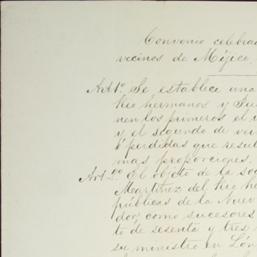 Convenio celebra
vecinos de Méjico
Art 1º Se establece una
Rio hermanos y
nen los primeros el
y el segundo de ve
ó perdidas que resul
mas proporciones.
Art 2º El objeto de la so
Martinez del Rio he
públicas de la Nuev
dor, como sucesores
to de sesenta y tres
su ministro en Lón